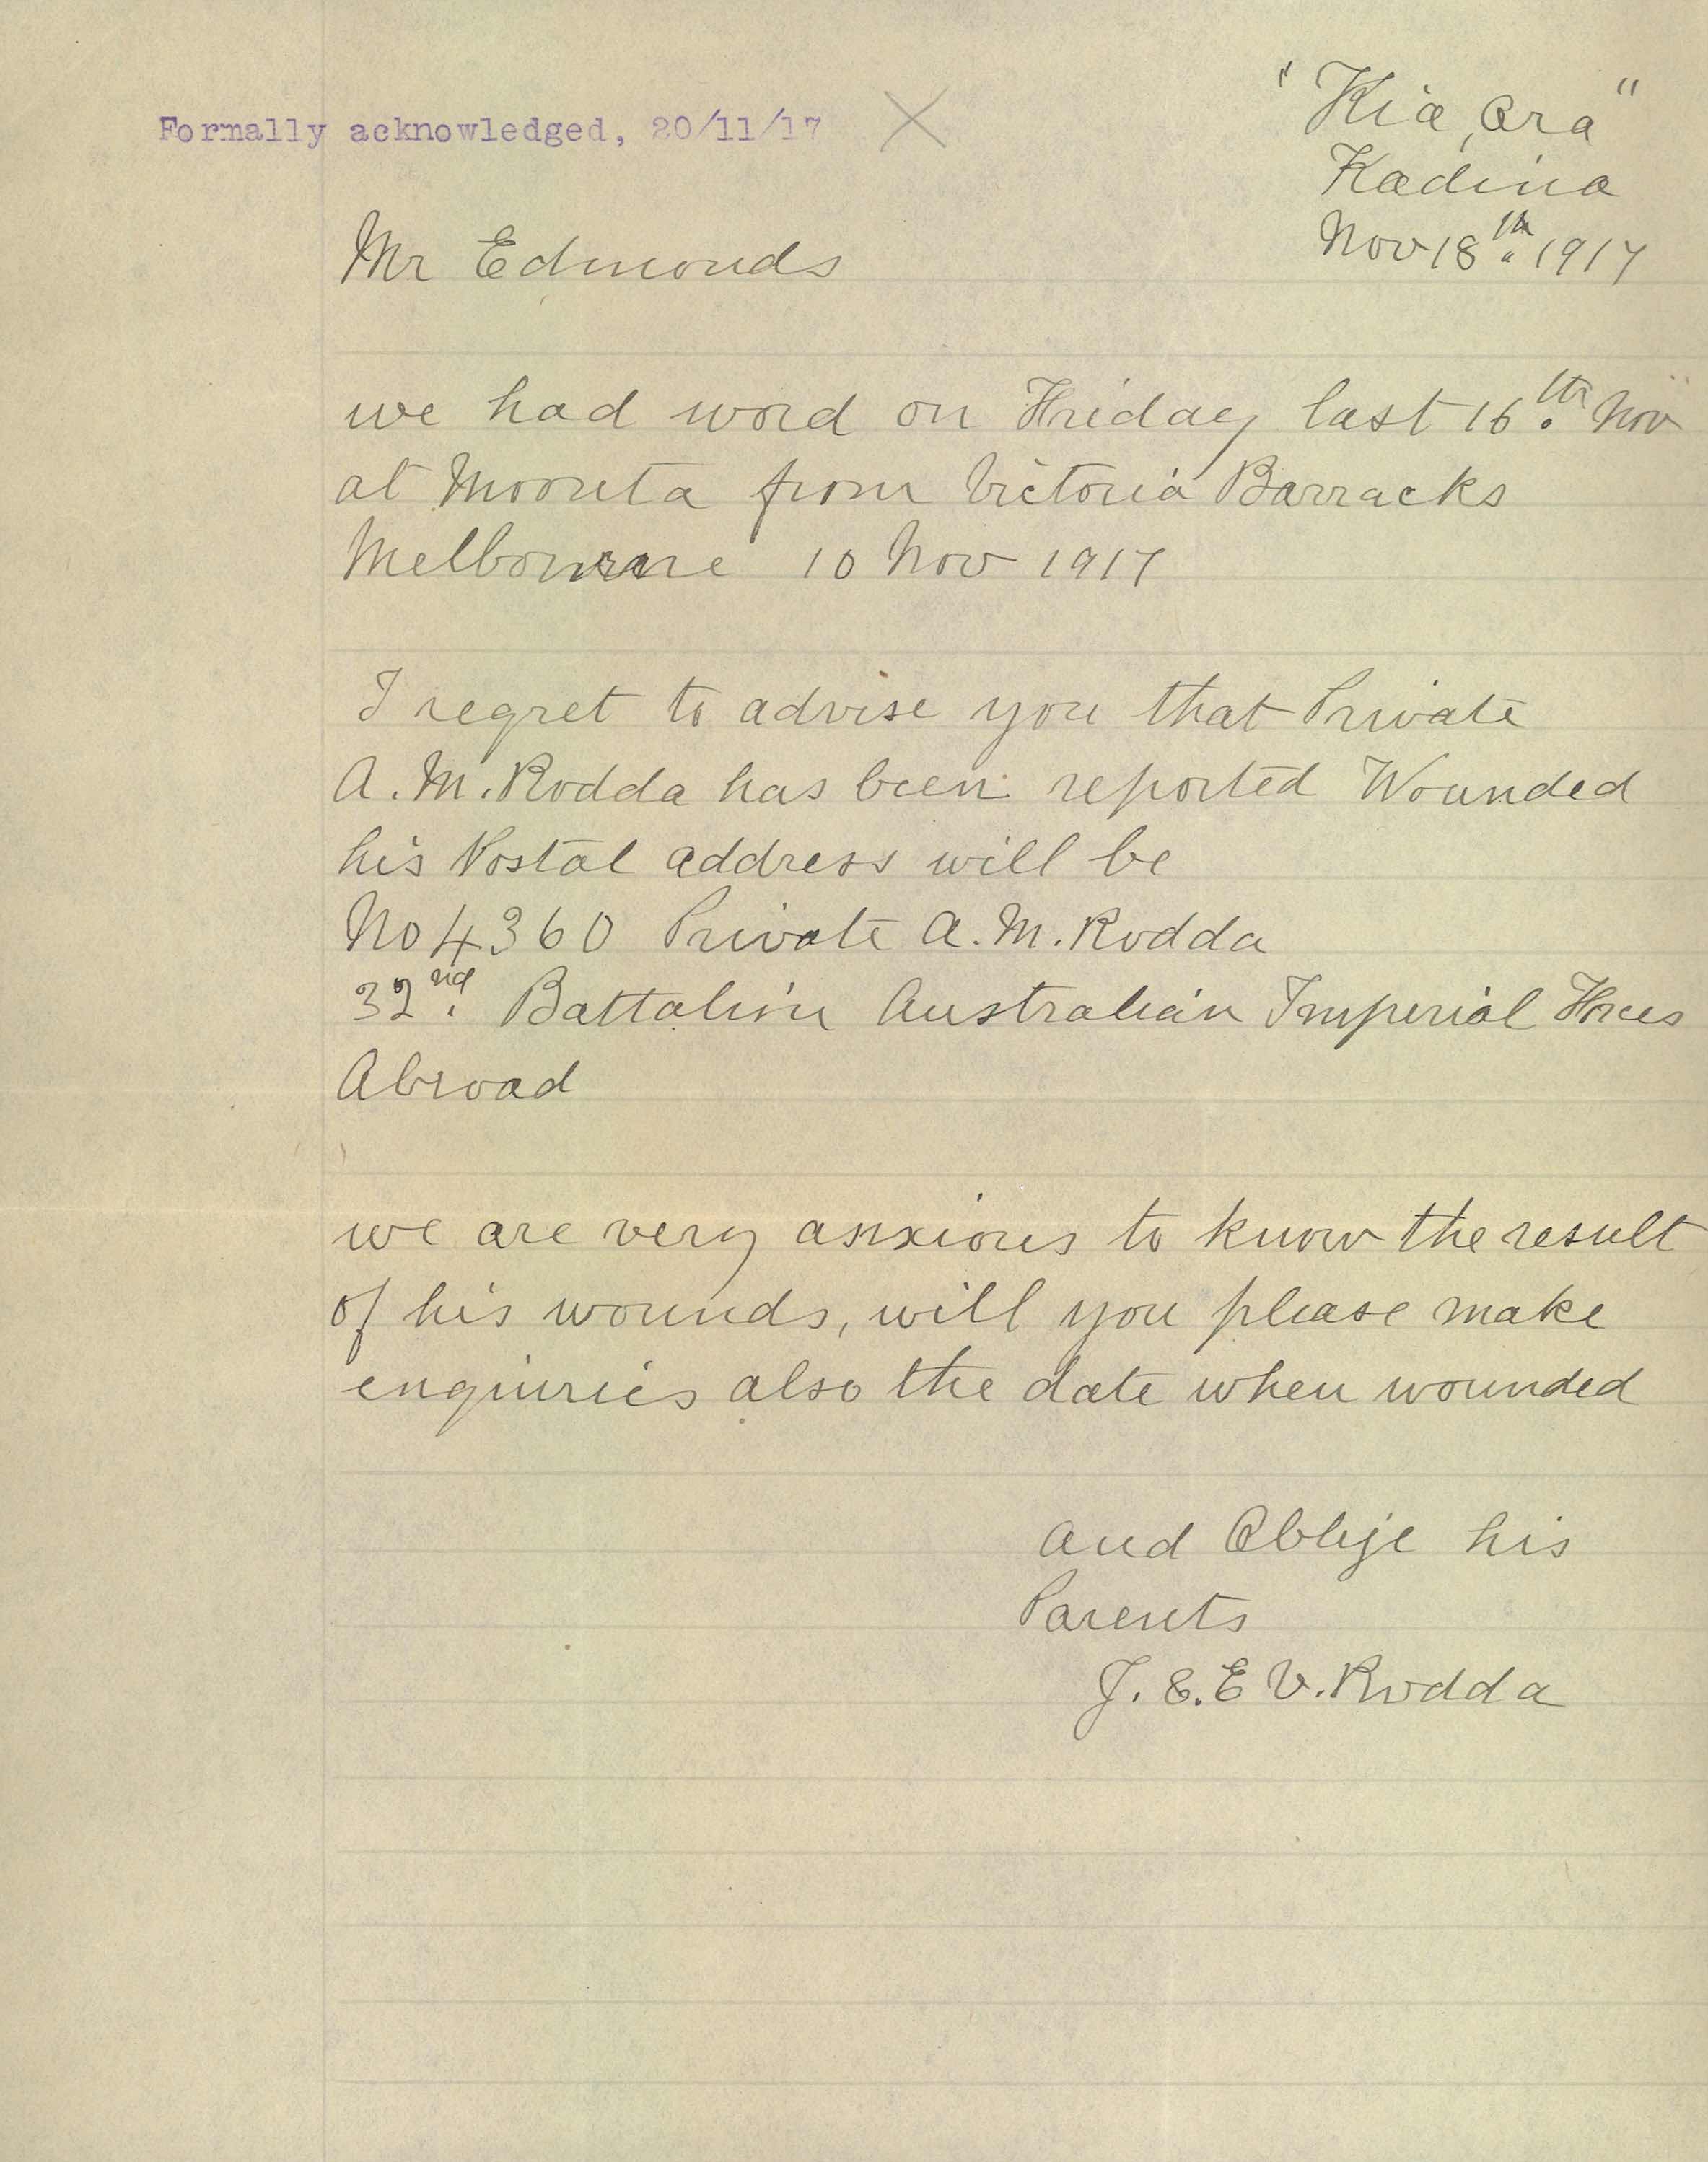 Formally acknowledged, 20/11/17 X
" Kia Ora "
Kadina
Nov 18th. 1917
Mr Edmonds
we had word on Friday last 16th. Nov
at Moonta from Victoria Barracks
Melbourne 10 Nov 1917
I regret to advise you that Private
A. M. Rodda has been reported Wounded
his Postal address will be
No 4360 Private A. M. Rodda
32nd. Battalion Australian Imperial Forces
Abroad
we are very anxious to know the result
of his wounds, will you please make
enquiries also the date when wounded
and Oblige his
Parents
J. & E V. Rodda